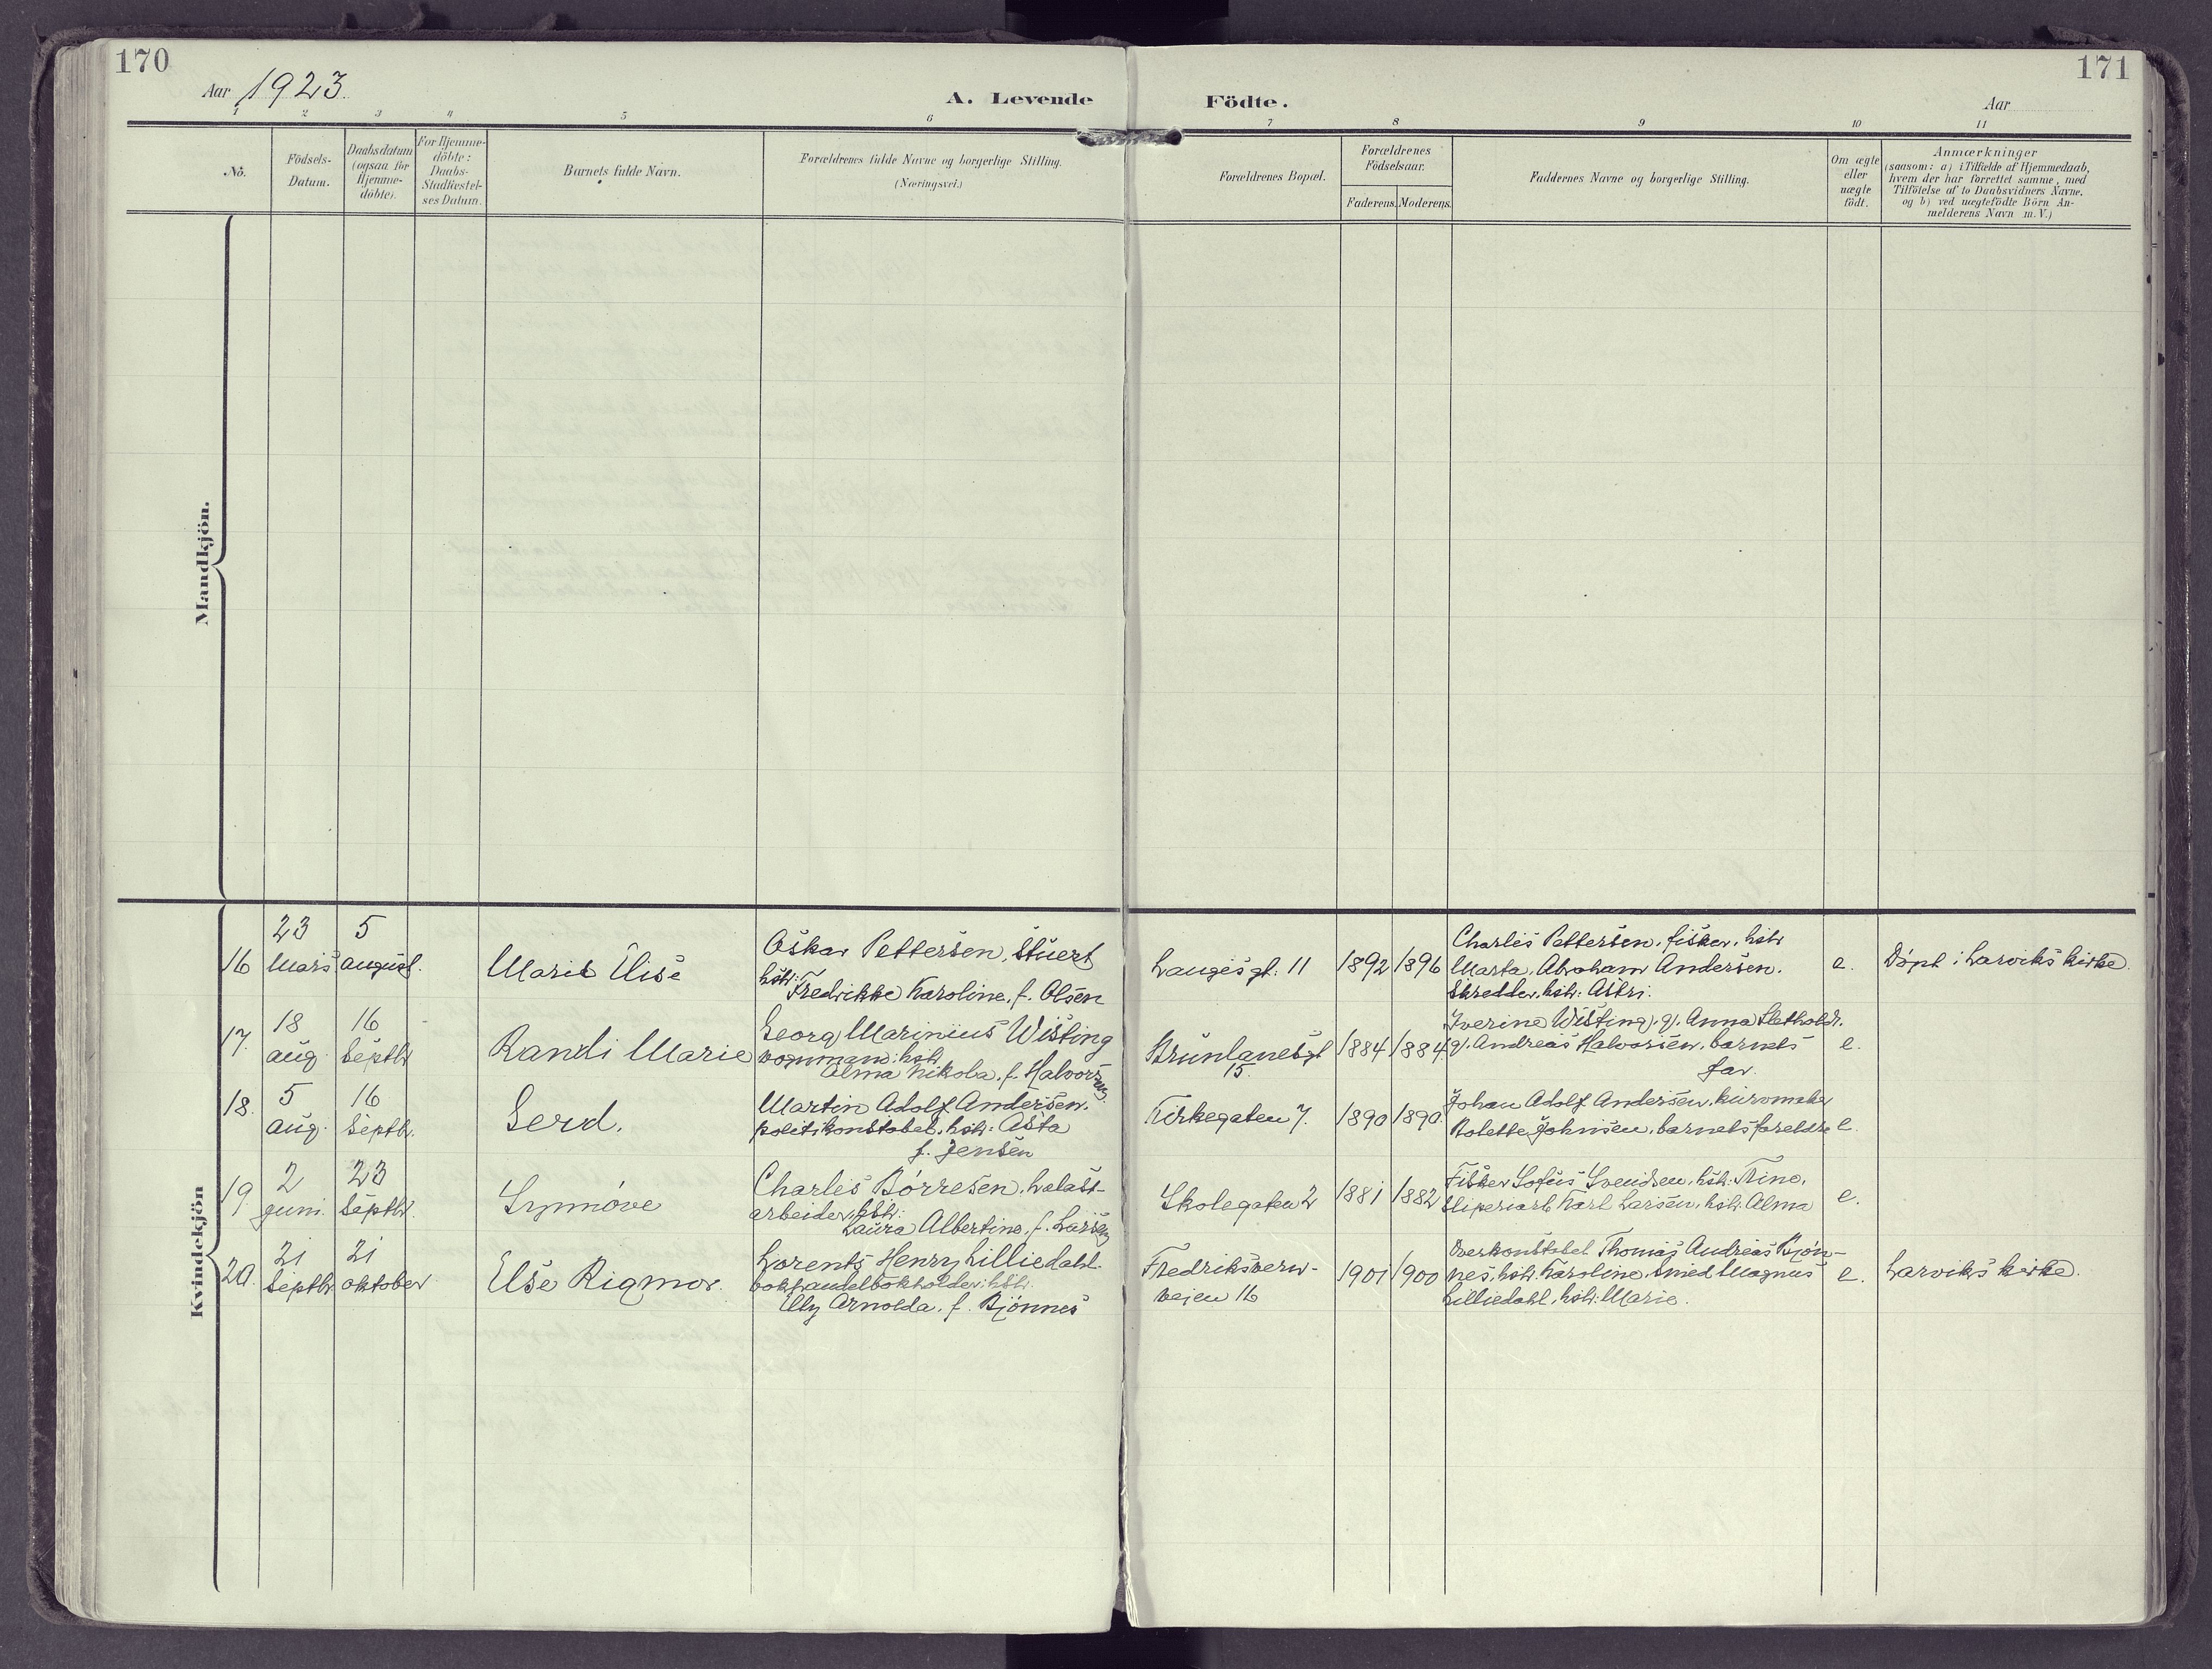 170
171
Aar 1923.
A. Levende Födte.
Aar
1 2 3 4 5 6 7 8 9 10 11
No.
Födsels-
Datum.
Daabsdatum
(ogsaa for
Hjemme-
döbte).
For Hjemme-
döbte:
Daabs-
Stadfæstel-
ses Datum.
Barnets fulde Navn.
Forældrenes fulde Navne og borgerlige Stilling.
(Næringsvei.)
Forældrenes Bopæl.
Forældrenes
Födselsaar.
Faderens. Moderens.
Faddernes Navne og borgerlige Stilling.
Om ægte
eller
uægte
födt.
Anmærkninger
(saasom: a) i Tilfælde af Hjemmedaab,
hvem der har forrettet samme, med
Tilföielse af to Daabsvidners Navne,
og b) ved uægtefödte Börn An-
melderens Navn m. V.)
Mandkjön.
Kvindekjön
16
23
Mars
5
august.
Marit Elise
Oskar Pettersen, Stuert
hstr:
Fredrikke Karoline, f. Olsen
Laugesgt. 11
1892
1896
Charles Pettersen, fisker, hstr
Marta, Abraham Andersen,
Skredder, hstr: Astri.
e.
Döpt i Larviks kirke.
17.
18
aug.
16
Septbr
Randi Marie
Georg Marinius Wisting
vognmand: hstr
Alma Nikola, f. Halvorsen
Brunlanesgt
15.
1884
1884
Iverine Wisting, g. Anna
g. Andreas Halvorsen, barnets
far.
e.
18.
5
aug.
16
Septbr.
Gerd.
Martin Adolf Andersen.
politikonstabel, hstr: Asta
f. Jensen
Kirkegaten 7.
1890
1890.
Johan Adolf Andersen, kurvmaker
Bolette Johnsen, barnets foreldre
e.
19
2
juni.
23
Septbr.
Synnöve
Charles Börresen,
arbeider, hstr:
Laura Albertine, f. Larsen
Skolegaten 2
1881
1882
Fisker Sofus Svendsen, hstr: Trine,
Sliperiarb Karl Larsen, hstr: Alma
e.
20.
21
Septbr
21
oktober
Else Rigmor.
Lorents Henry Lilliedahl
bokhandelbokholder: hstr:
Elly Arnolda, f. Bjönnes
Fredriksvern-
veien 16
1901
1900
Overkonstabel Thomas Andreas Bjön-
nes, hstr: Karoline, Smed Magnus
Lilliedahl, hstr: Marie.
e.
Larviks kirke.